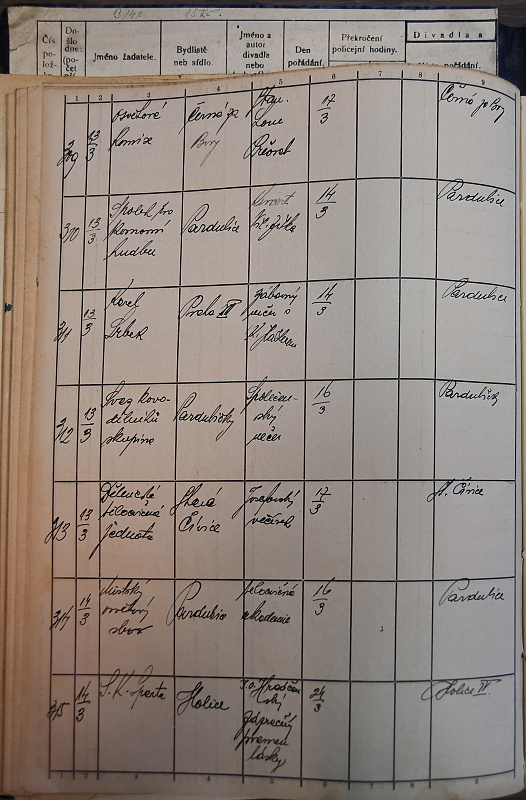 Čís. po- lož-
Do- šlo dne: (počet
Jméno žadatele.
Bydliště
neb sídlo.
Jméno a
autor
divadla
nebo
Den
pořádání.
Překročení
policejní hodiny.
Divadla a
pořádání.
1 2 3 4 5 6 7 8 9
309 13/3
Osvětová
Komise
Černá za
Bory
17/3
Černá za Bory
310 13/3
Spolek pro
Komorní
hudbu
Pardubice
Koncert
14/3
Pardubice
311 13/3
Karel
Srbek
Praha III
Zábavný
večer s
K. Hašlerem
14/3
Pardubice
312 13/3
Svaz kovo-
dělníků
skupina
Pardubičky
Společen-
ský
večer
16/3
Pardubičky
313 13/3
Dělnická
tělocvičná
jednota
Stará
Čívice
Josefovský
večírek
17/3
St. Čívice
314 14/3
Městský
osvětový
sbor
Pardubice
tělocvičná
akademie
16/3
Pardubice
315 14/3
S. K. Sparta
Holice
Zázračný
pramen
lásky
24/3
Holice IV.
1 2 3 4 5 6 7 8 9